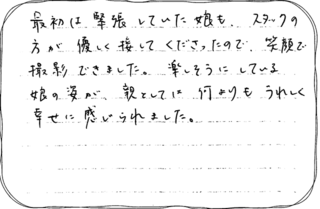 最初は緊張していた娘も、スタッフの
方が優しく接してくださったので、笑顔で
撮影できました。楽しそうにしている
娘の姿が、親としては何よりもうれしく
幸せに感じられました。